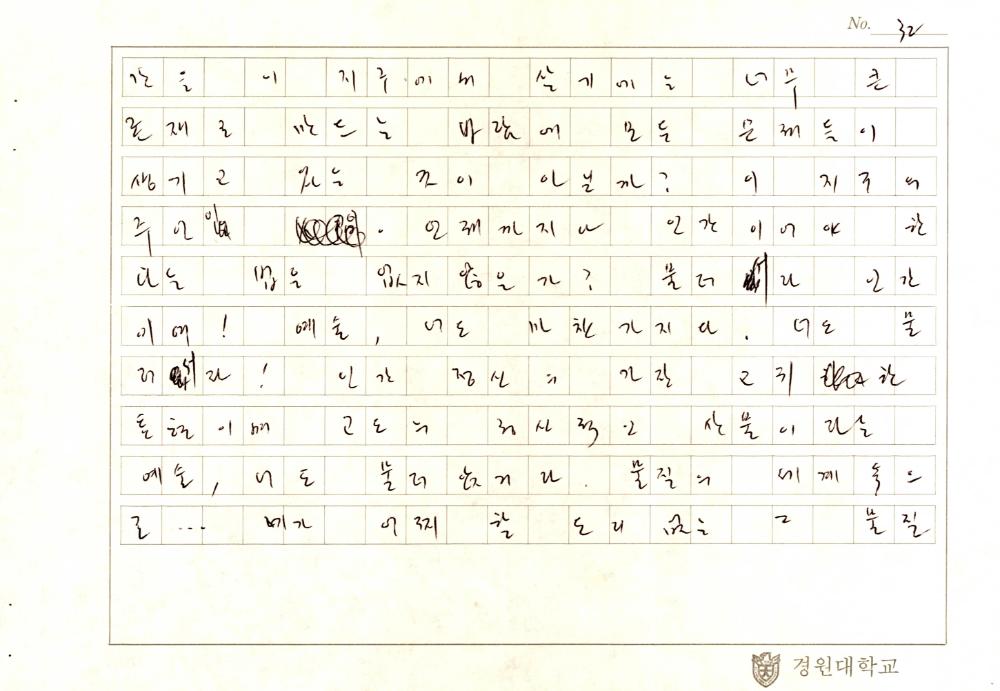 No. 32
간을 이 지구에서 살기에는 너무 큰
존재로 만드는 바람에 모든 문제들이
생기고 있는 것이 아닐까? 이 지구의
주인입 . 언제까지나 인간이어야 한
다는 법은 없지 않을가? 물러서라 인간
이여! 예술, 너도 마찬가지다. 너도 물
러서라! 인간 정신의 가장 고귀한
표현이며 고도의 정신적인 산물이라는
예술, 너도 물러앉거라. 물질의 세계 속으
로... 네가 어찌 할 도리 없는 그 물질
경원대학교